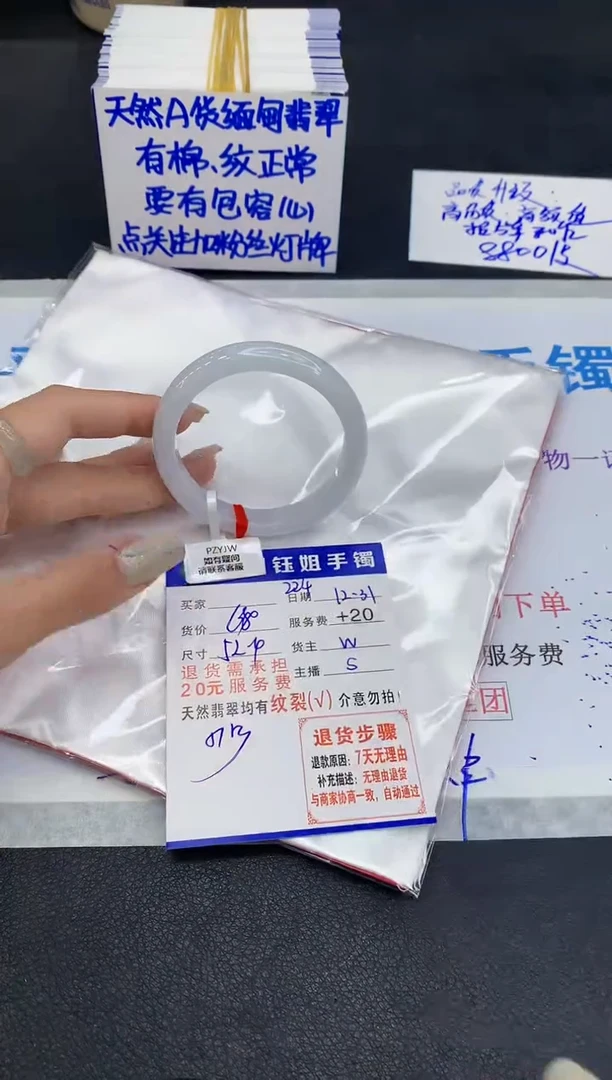 天然A货缅甸翡翠
有棉、纹正常
要有包容心
点关注加粉丝灯牌
8800
手镯
物一
PZYJW
如有疑问
请联系客服
钰姐手镯
224
买家
日期 12-21
货价 680
服务费 +20
尺寸
货主 W
退货需承担
20元服务费
主播 S
天然翡翠均有纹裂(√)介意勿拍!
退货步骤
退款原因:7天无理由
补充描述:无理由退货
与商家协商一致,自动通过
下单
服务费
团